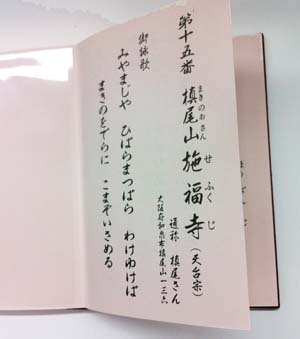 第十五番
槙尾山 施福寺(天台宗)
まきのおさん せふくじ
通称 槙尾さん
大阪府和泉市槙尾山一三六
御詠歌
みやまじや ひばらまつばら わけゆけば
まきのをでらに こまぞいさめる